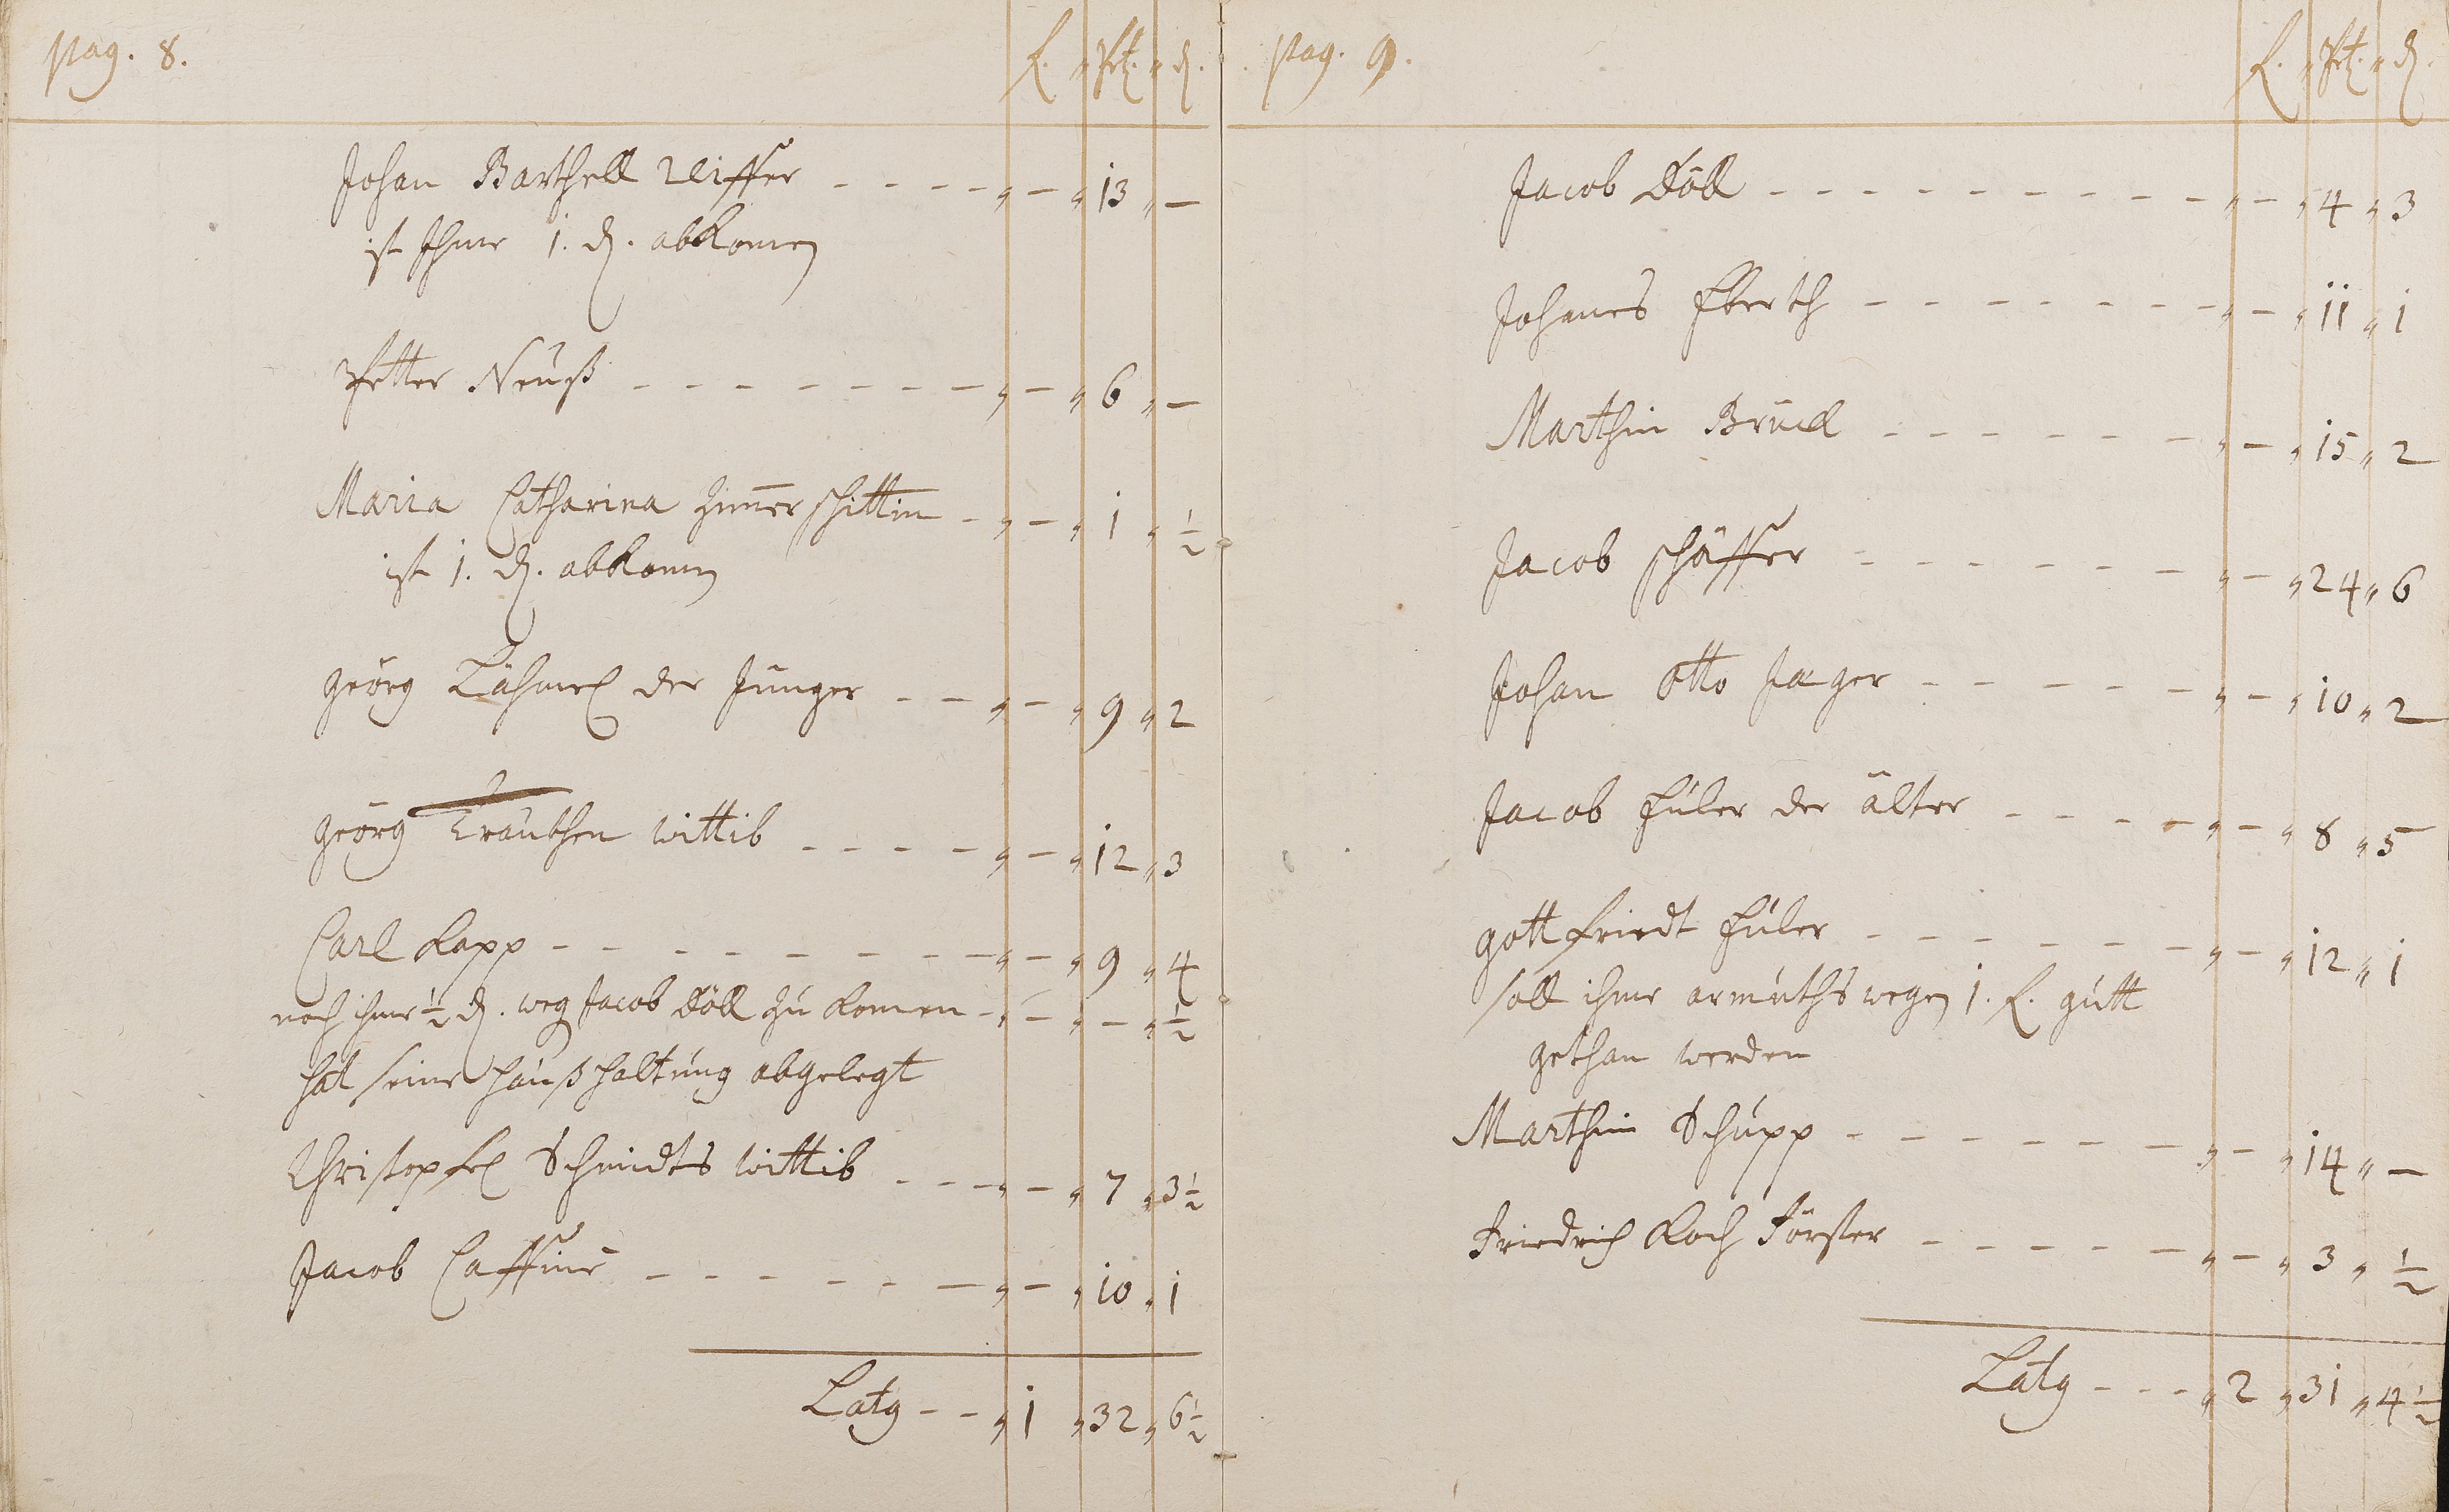 Pag. 8.
f. " Btz. " ₰.
Johan Barthell Reiffer - - - - " - " 13 " -
ist Ihme 1. ₰. abkomen
Petter Neuß - - - - - - - " - " 6 " -
Maria Catharina Zim̅erschittin - " - " 1 " ½
ist 1. ₰. abkomen
Georg Lähmel der Junger - - " - " 9 " 2
Georg Trauthen wittib - - - - " - " 12 " 3
Carl Kapp - - - - - - - " - " 9 " 4
noch ihme ½ ₰. weg Jacob Döll zu komen - " - " - " ½
hat seine haußhaltung abgelegt
Christopfel Schmidts wittib - - - " - " 7 " 3½
Jacob Cassine - - - - - - " - " 10 " 1
Latg - - " 1 " 32 " 6½
Pag. 9.
f. " Btz. " ₰.
Jacob Döll - - - - - - - - - " - " 4 " 3
Johanes Eberth - - - - - - - " - " 11 " 1
Marthin Brück - - - - - - " - " 15 " 2
Jacob schäffer - - - - - - " - " 24 " 6
Johan Otto Jaeger - - - - - " - " 10 " 2
Jacob Füler der älter - - - - " - " 8 " 5
Gottfriedt Füler - - - - - - " - " 12 " 1
soll ihme armuths wegen 1. f. gutt
gethan werden
Marthin Schupp - - - - - - " - " 14 " -
Friedrich Koch Förster - - - - - " - " 3 " ½
Latg - - - " 2 " 31 " 4½